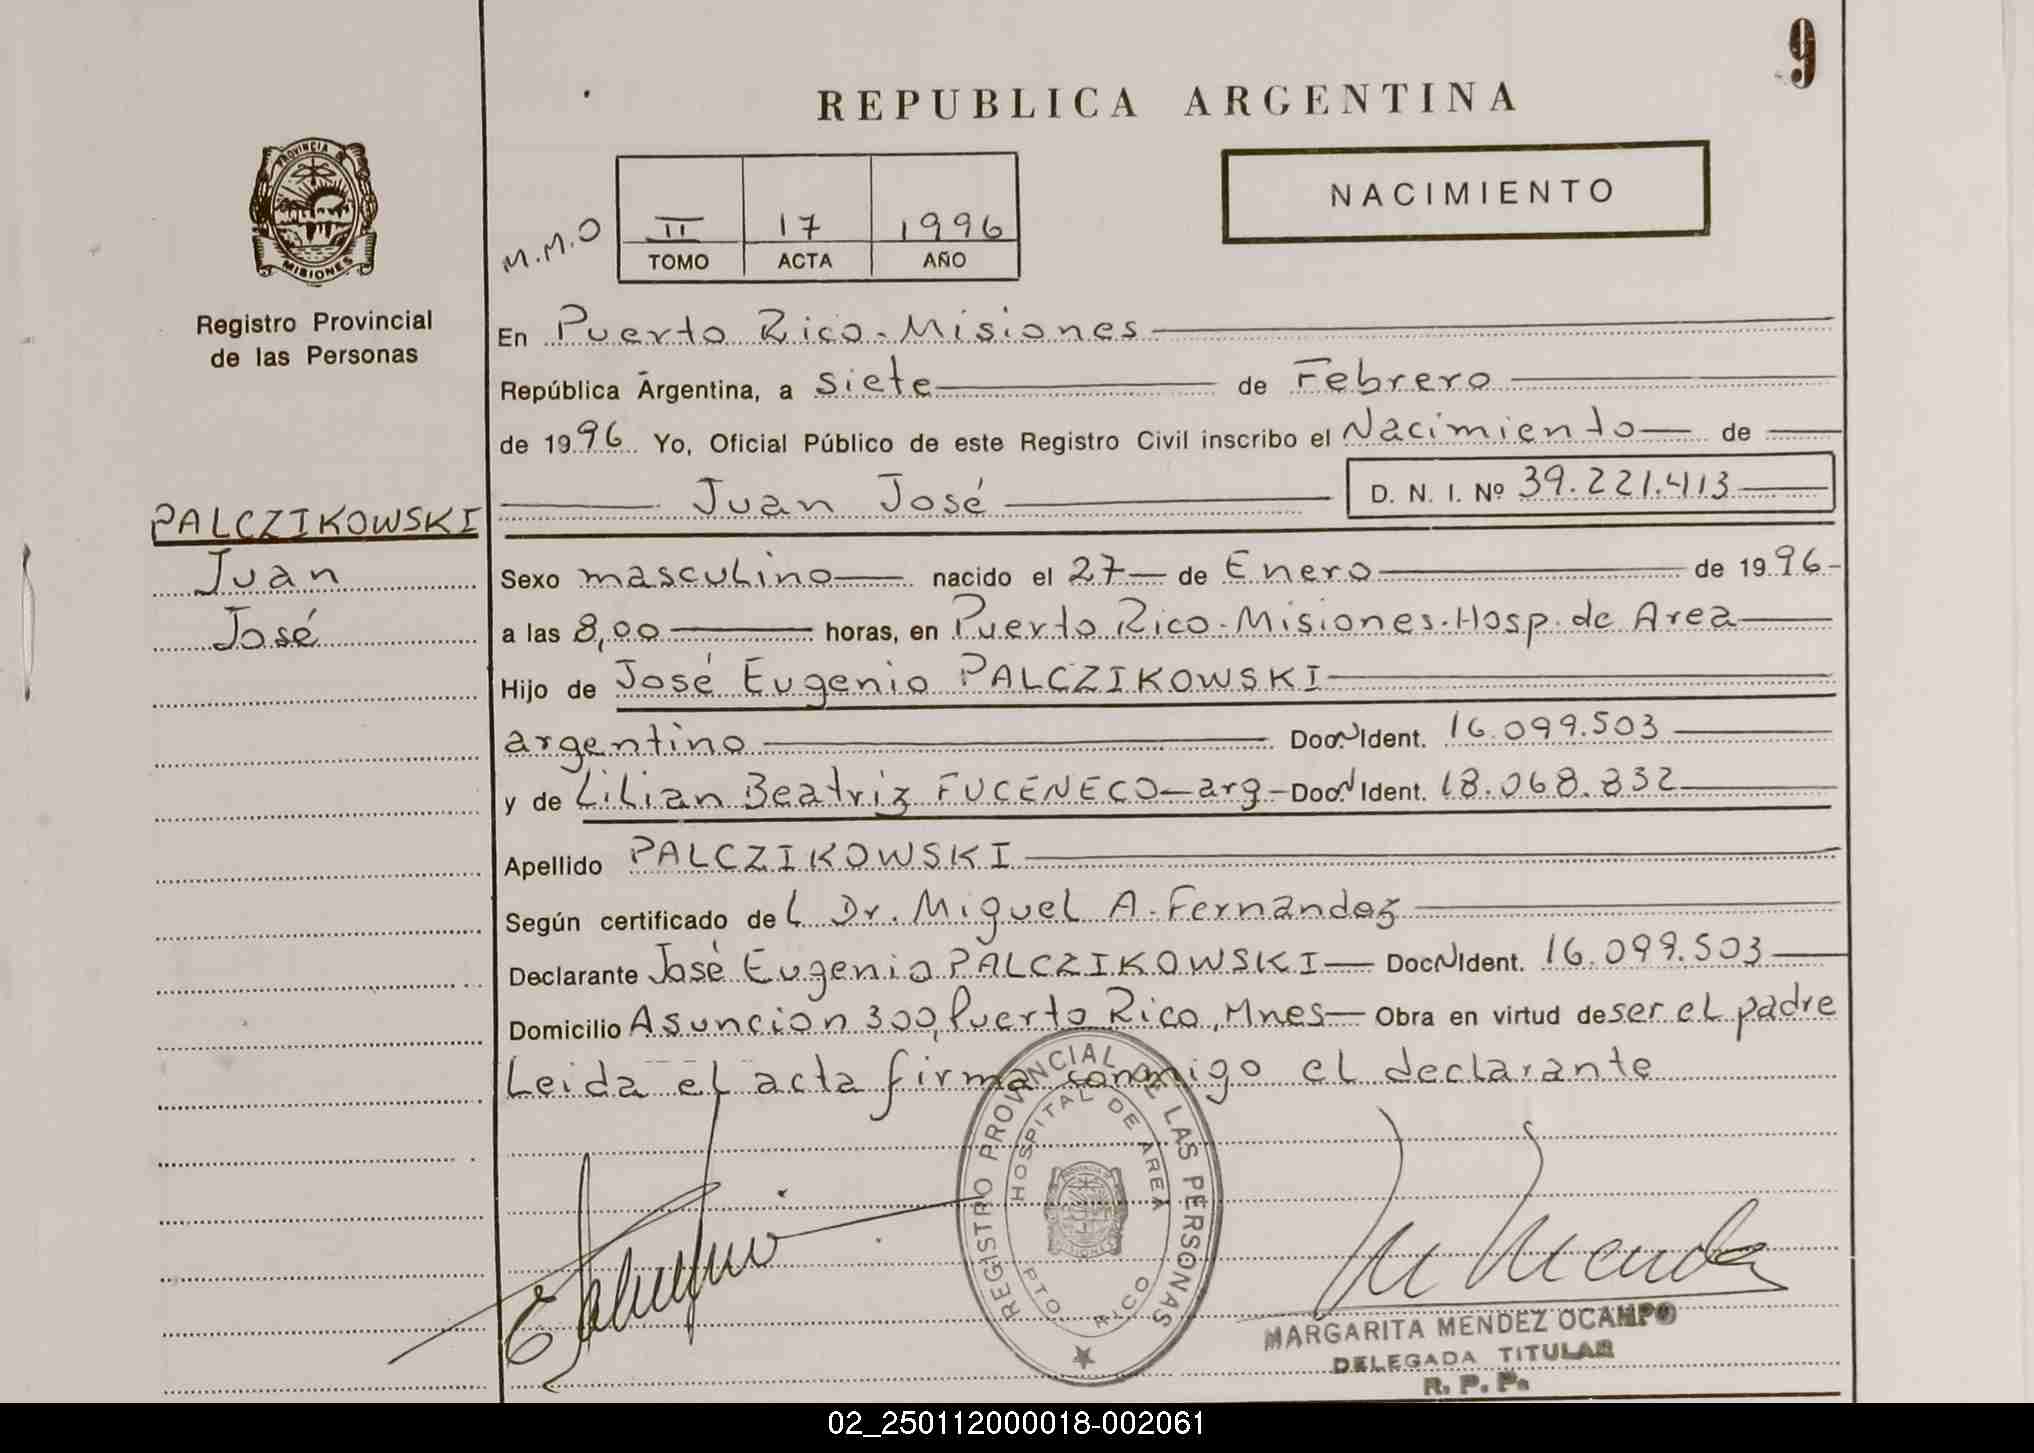 9
REPUBLICA ARGENTINA
PROVINCIA DE
MISIONES
Registro Provincial
de las Personas
NACIMIENTO
M.M.O
II 17 1996
TOMO ACTA AÑO
En Puerto Rico-Misiones
República Argentina, a siete de Febrero
de 1996 Yo, Oficial Público de este Registro Civil inscribo el Nacimiento de
Juan José D. N. I. Nº 39.221.413
PALCZIKOWSKI
Juan
José
Sexo masculino nacido el 27 de Enero de 1996
a las 8,00 horas, en Puerto Rico-Misiones-Hosp. de Area
Hijo de José Eugenio PALCZIKOWSKI
argentino Doc. Ident. 16.099.503
y de Lilian Beatriz FUCENECO-arg- Doc. Ident. 18.068.832
Apellido PALCZIKOWSKI
Según certificado del Dr. Miguel A. Fernandez
Declarante José Eugenio PALCZIKOWSKI Doc. Ident. 16.099.503
Domicilio Asuncion 300, Puerto Rico, Mnes Obra en virtud de ser el padre
Leida el acta firma conmigo el declarante
REGISTRO PROVINCIAL DE LAS PERSONAS
HOSPITAL DE AREA
PTO RICO
MARGARITA MENDEZ OCAMPO
DELEGADA TITULAR
R. P. P.
02_250112000018-002061